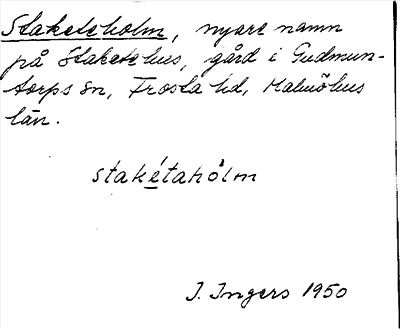 Staketeholm, nyare namn
på Staketehus, gård i Gudmun-
torps sn, Frosta hd, Malmöhus
län.
stakétahólm
I. Ingers 1950